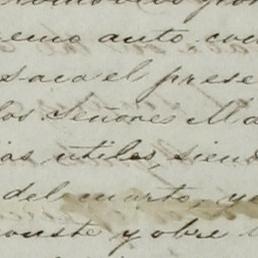 remo auto con
saca el prese
los Señores Ma
ias utiles, siend
del cuarto, y
conste y obre